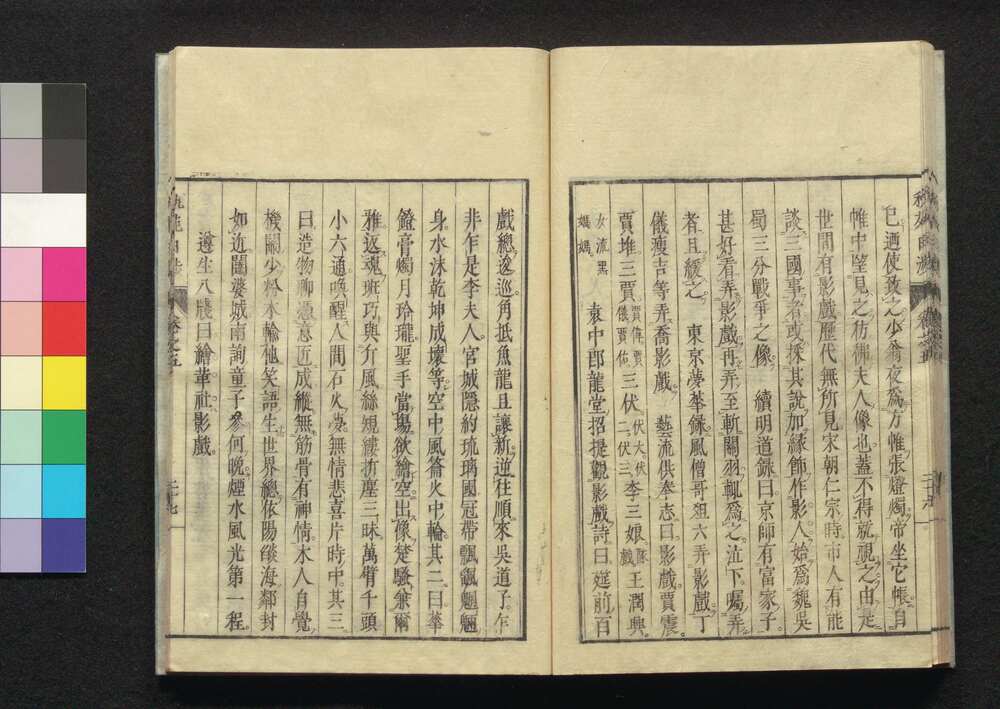 已迺使致之少翁夜爲方帷張燈燭帝坐它帳自
帷中望見之彷彿夫人像也蓋不得就視之由是
世間有影戲歷代無所見宋朝仁宗時市人有能
談三國事者或採其說加緣飾作影人始爲魏吳
蜀三分戰爭之像 續明道錄曰京師有富家子
甚好看弄影戲再弄至斬關羽輒爲之泣下囑弄
者且緩之 東京夢華錄風僧哥俎六弄影戲丁
儀瘦吉等弄喬影戲 藝流供奉志曰影戲賈震
賈堆三賈賈偉賈儀賈佑三伏伏大伏二伏三李三娘隊戲王潤興
女流黑媽媽 袁中郎龍堂招提觀影戲詩曰筵前百
戲總逡巡角抵魚龍且讓新逆往順來吳道子乍
非乍是李夫人宮城隱約琉璃國冠帶飄飖魍魎
身水沫乾坤成壞等空中風籥火中輪其二曰華
鐙膏燭月玲瓏聖手當場欲繪空出像楚騷兼爾
雅返魂班巧與介風絲規縷折塵三昧萬臂千頭
小六通喚醒人間石火夢無情悲喜片時中其三
曰造物聊憑意匠成縱無筋骨有神情木人自覺
機關少粉本輪他笑語生世界總依陽燄海鄰封
如近闥婆城南詢童子參何晚煙水風光第一程
遵生八牋曰繪革社影戲